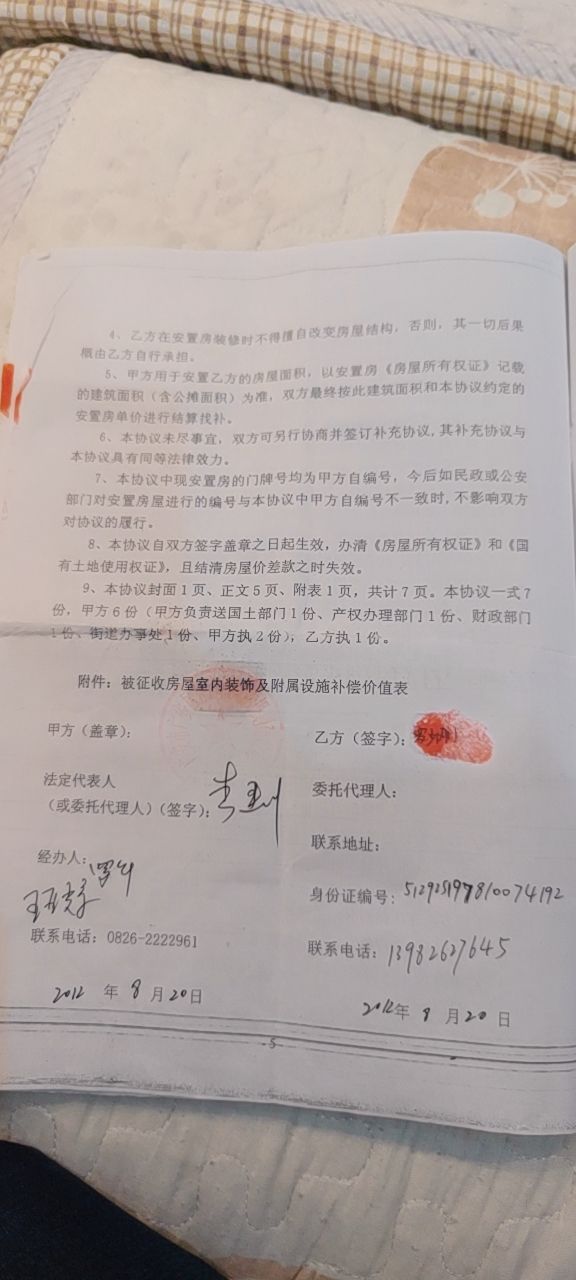 4、乙方在安置房装修时不得擅自改变房屋结构，否则，其一切后果
概由乙方自行承担。
5、甲方用于安置乙方的房屋面积，以安置房《房屋所有权证》记载
的建筑面积（含公摊面积）为准，双方最终按此建筑面积和本协议约定的
安置房单价进行结算找补。
6、本协议未尽事宜，双方可另行协商并签订补充协议,其补充协议与
本协议具有同等法律效力。
7、本协议中现安置房的门牌号均为甲方自编号，今后如民政或公安
部门对安置房屋进行的编号与本协议中甲方自编号不一致时,不影响双方
对协议的履行。
8、本协议自双方签字盖章之日起生效，办清《房屋所有权证》和《国
有土地使用权证》，且结清房屋价差款之时失效。
9、本协议封面1页、正文5页、附表1页，共计7页。本协议一式7
份，甲方6份（甲方负责送国土部门1份、产权办理部门1份、财政部门
1份、街道办事处1份、甲方执2份），乙方执1份。
附件：被征收房屋室内装饰及附属设施补偿价值表
甲方（盖章）：
乙方（签字）：
法定代表人
（或委托代理人）（签字）：
委托代理人：
联系地址：
经办人：
身份证编号：512925197810074192
联系电话：0826-2222961
联系电话：13982627645
2012 年 8 月 20 日
2012 年 8 月 20 日
-5-